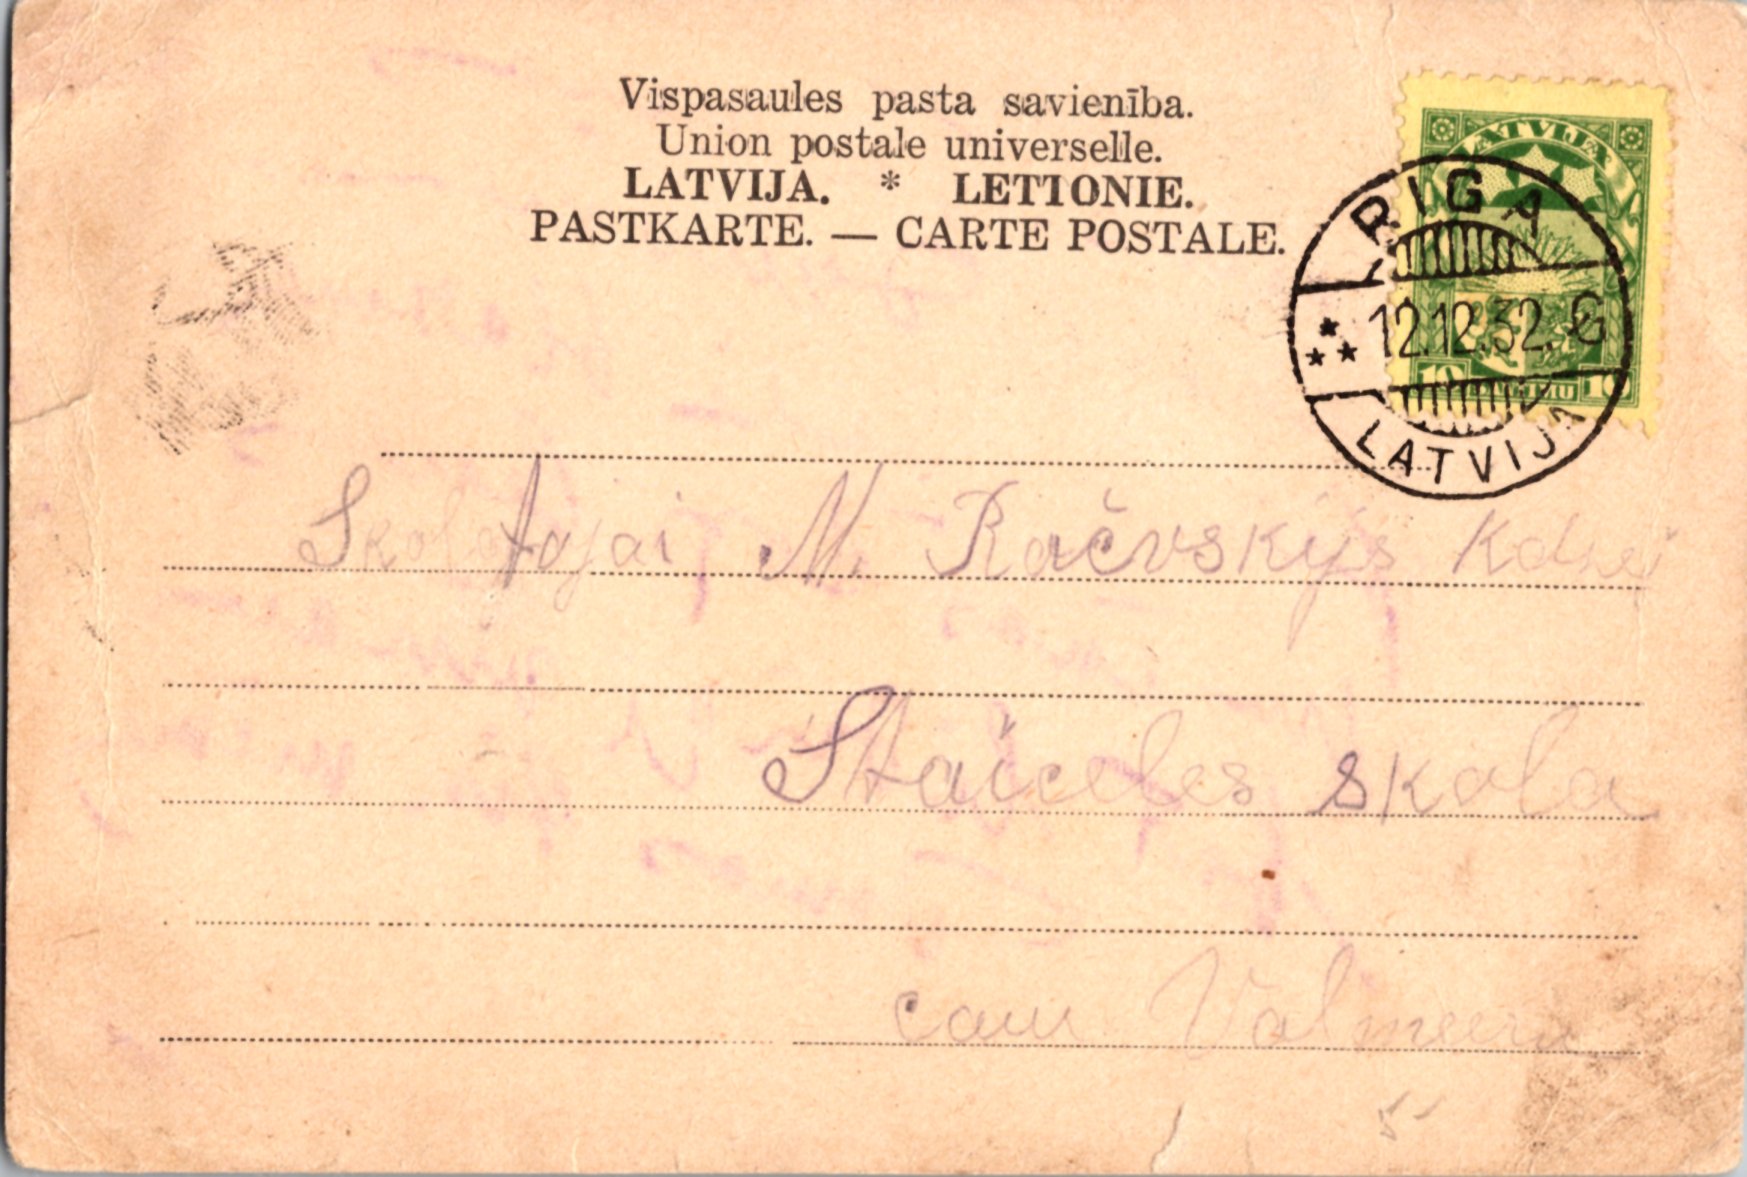 Vispasaules pasta savienība.
Union postale universelle.
LATVIJA. * LETTONIE.
PASTKARTE. — CARTE POSTALE.
LATVIJA
10 10
RIGA
12.12.32. G
LATVIJA
Skolotajai M. Račevskijs Kdzei
Staiceles skola
caur Valmeeru
5